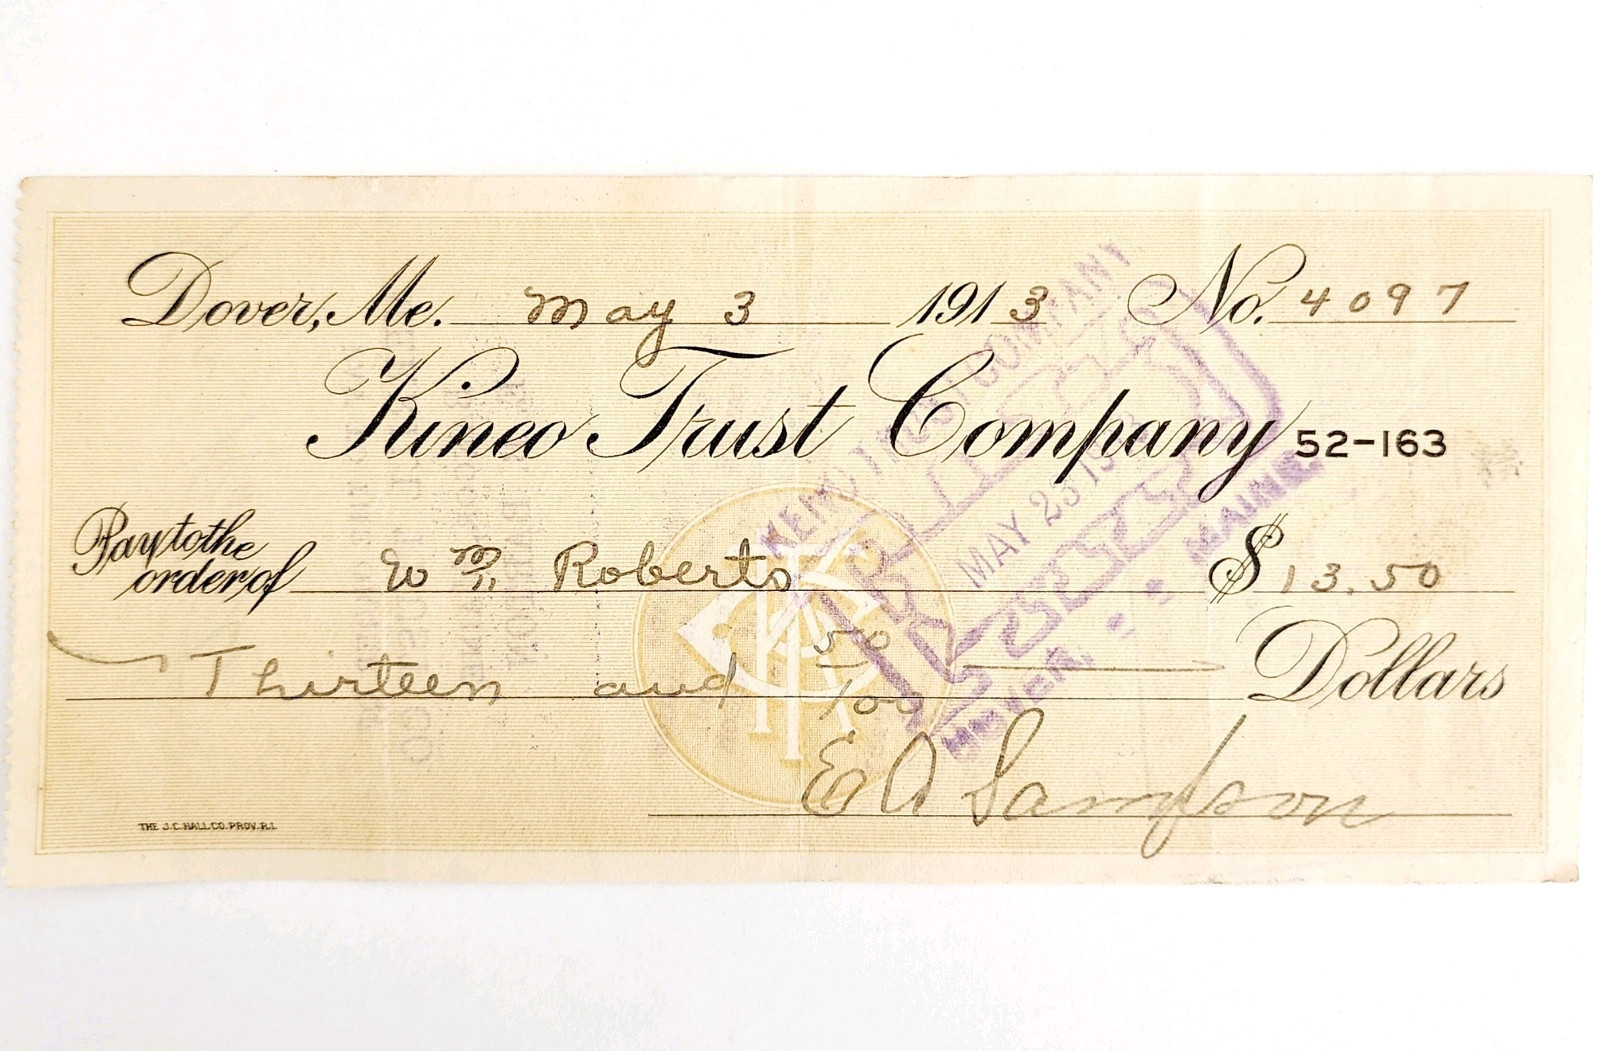 Dover, Me. May 3 1913 No. 4097
Kineo Trust Company 52-163
Pay to the
order of Wm Roberts $13.50
Thirteen and 50/100 Dollars
E A Sampson
THE J.C. HALL CO. PROV. R.I.
KINEO TRUST COMPANY
PAID
MAY 23 19
DOVER, MAINE.